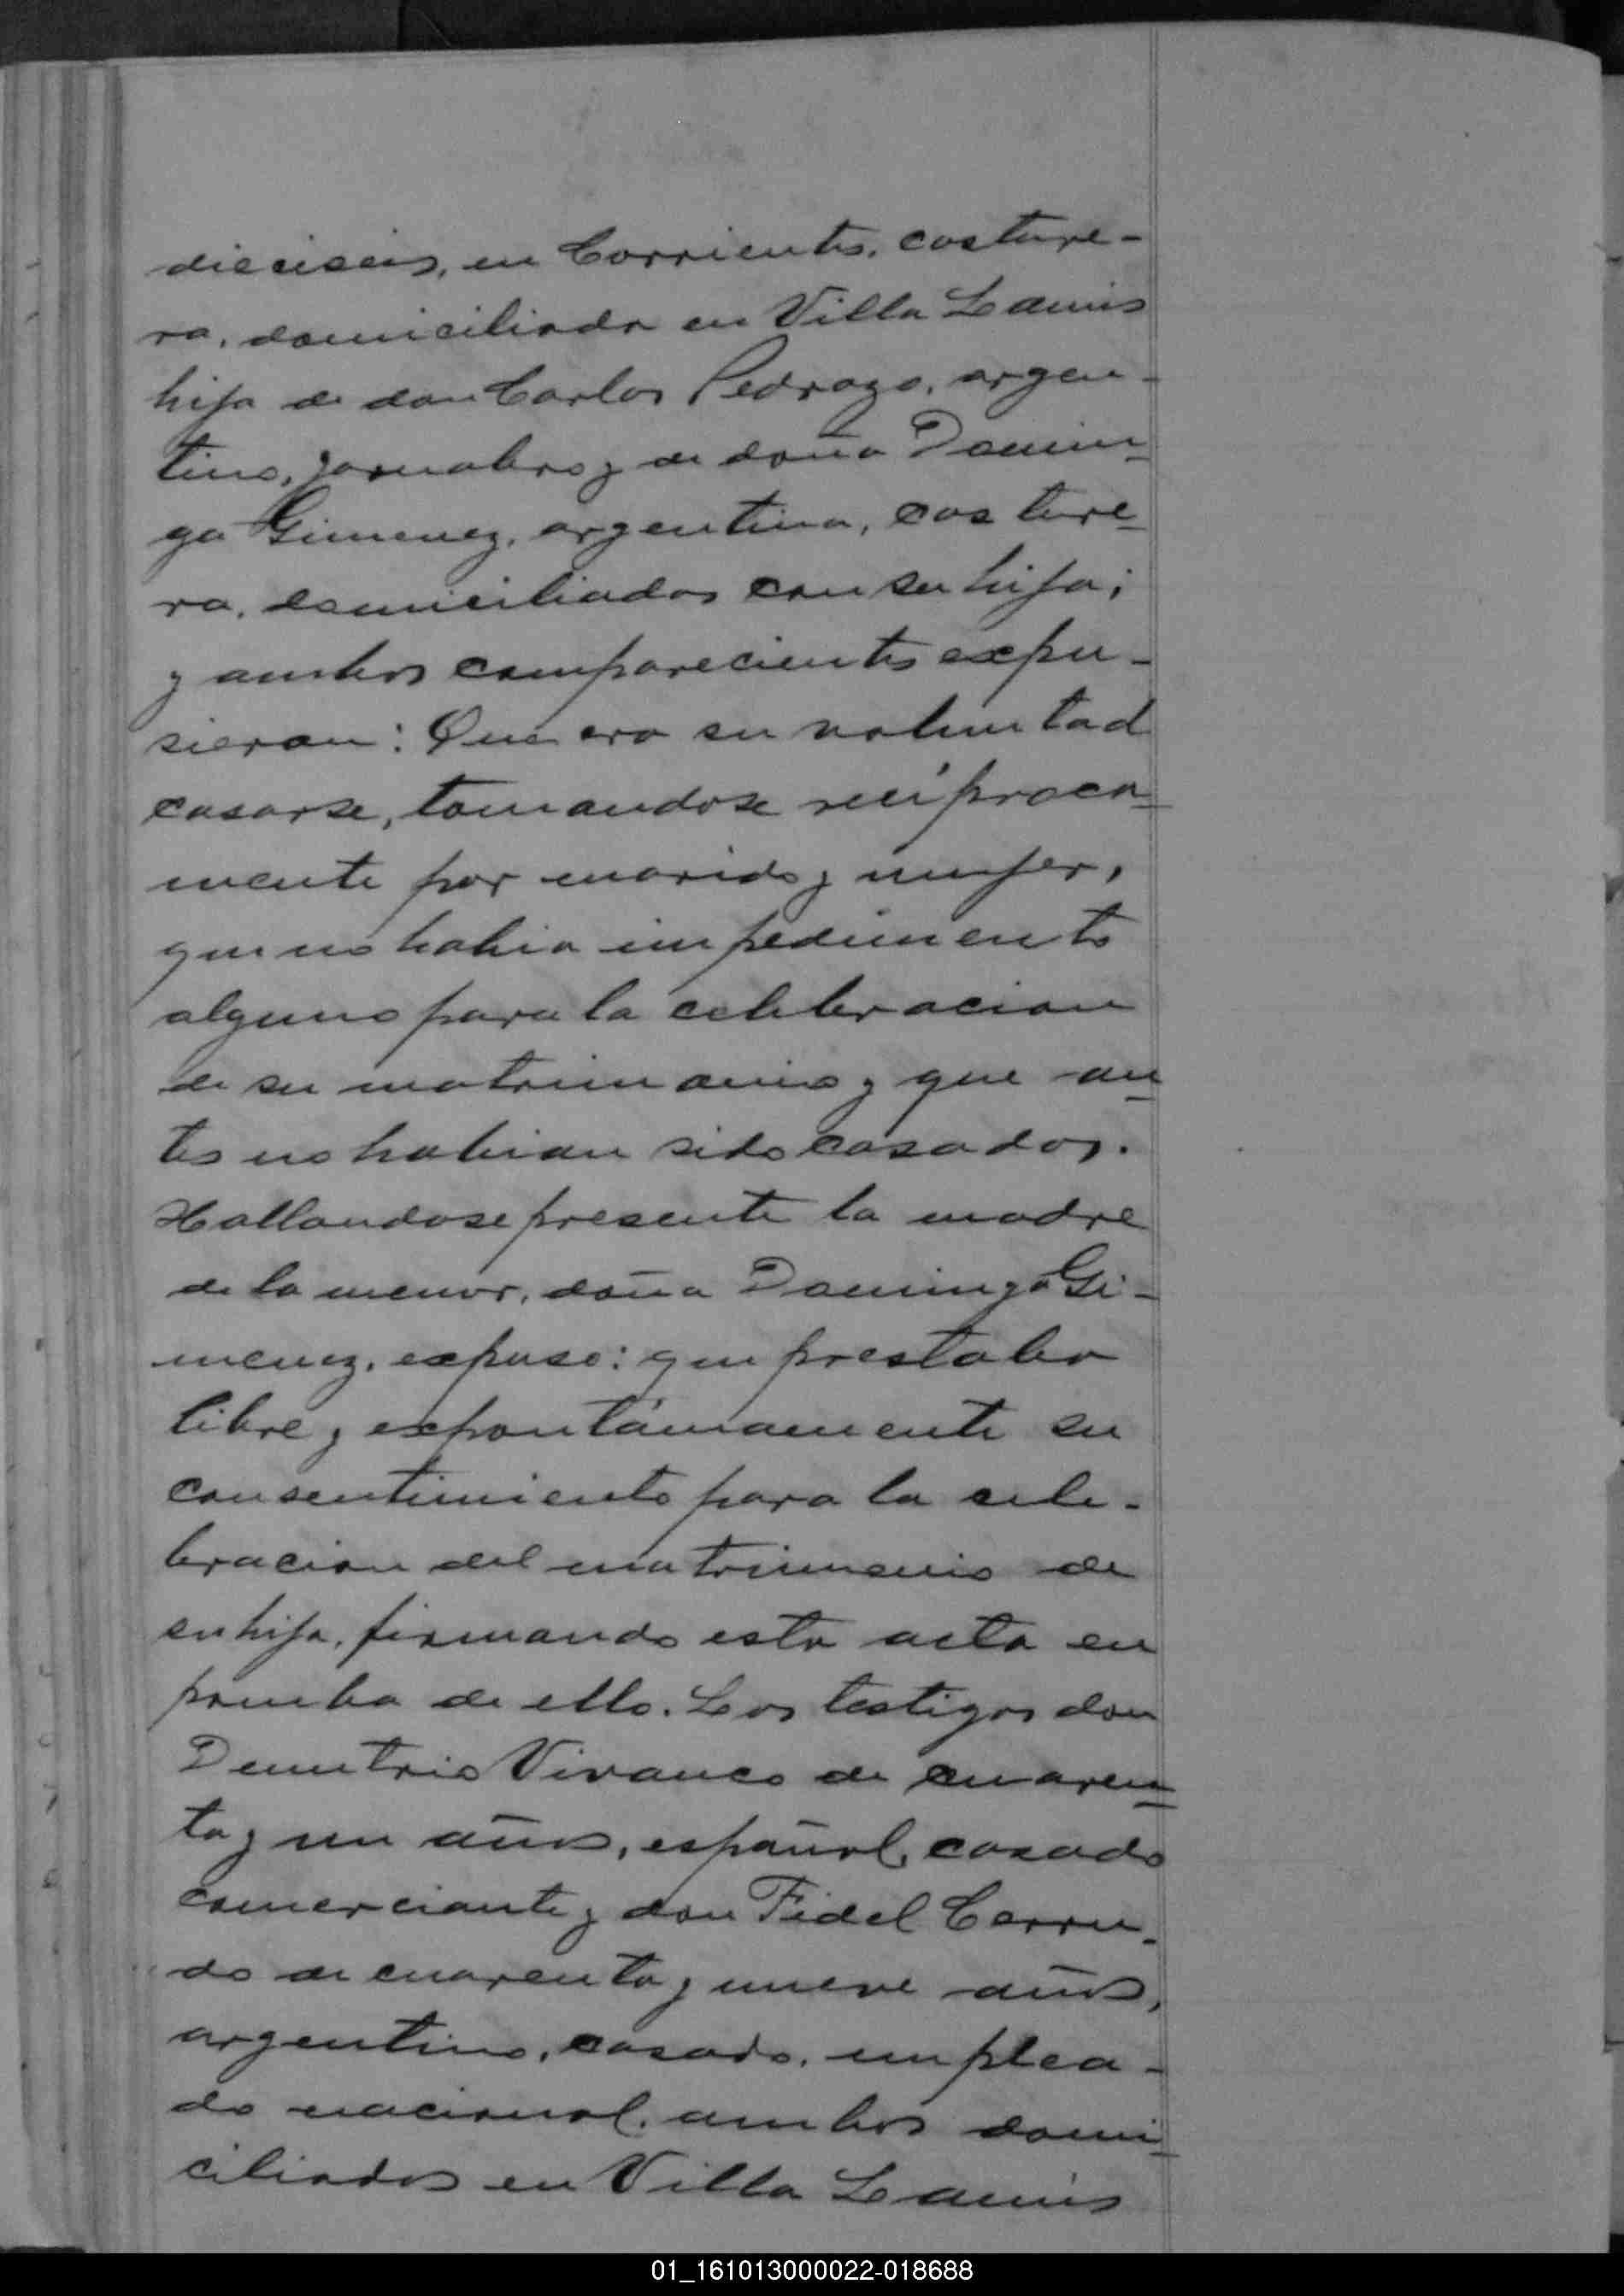 dieciseis, en Corrientes, costure-
ra, domiciliada en Villa Lanús
hija de don Carlos Pedrozo, argen-
tino, jornalero y de doña Domin-
ga Gimenez, argentina, costure-
ra, domiciliados con su hija;
y ambos comparecientes expu-
sieron: Que era su voluntad
casarse, tomandose recíproca-
mente por marido y mujer,
que no habia impedimento
alguno para la celebracion
de su matrimonio y que an-
tes no habian sido casados.
Hallandose presente la madre
de la menor, doña Dominga Gi-
menez, expuso: que prestaba
libre y expontáneamente su
consentimiento para la cele-
bracion del matrimonio de
su hija, firmando esta acta en
prueba de ello. Los testigos don
Demetrio Vivanco de cuaren-
ta y un años, español, casado
comerciante y don Fidel Cerru-
do de cuarenta y nueve años,
argentino, casado, emplea-
do nacional, ambos domi-
ciliados en Villa Lanús
01_161013000022-018688